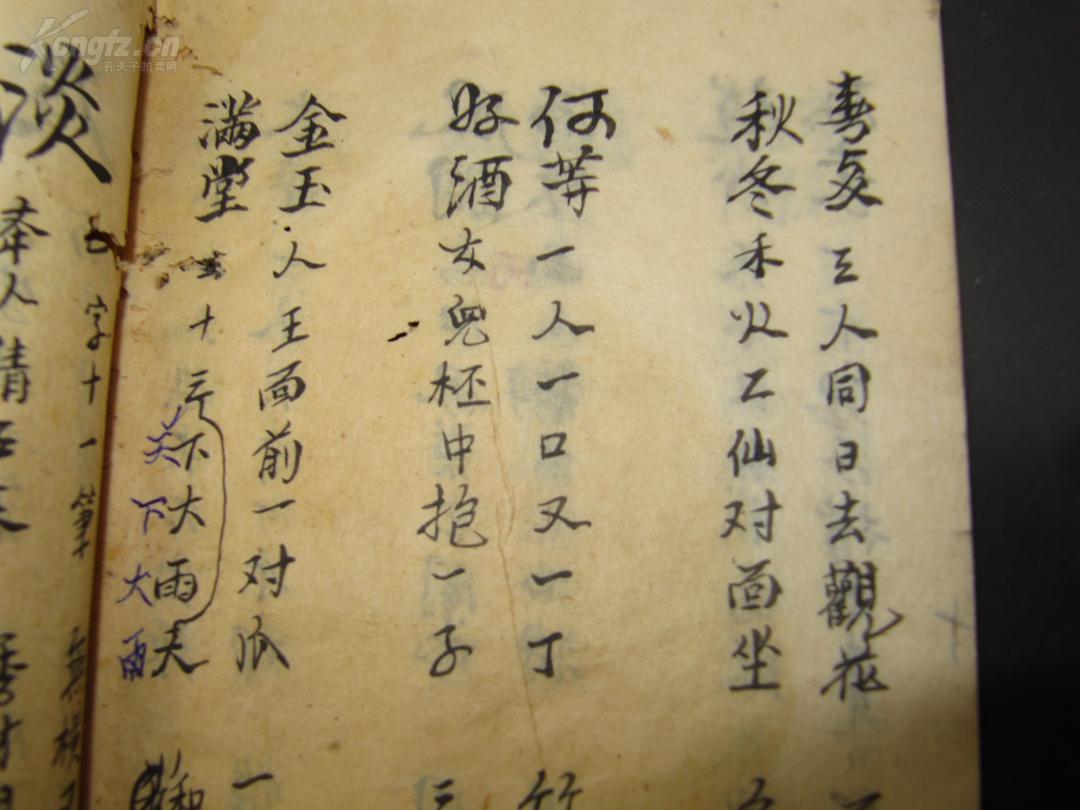 春夏 三人同日去觀花
秋冬 禾火二仙对面坐
何等 一人一口又一丁
好酒 女兒杯中抱一子
金玉 人王面前一对瓜
满堂 二十三下大雨天
天下大雨
一
和
竹
三
淡
五字十一筆
奉人請
Kongfz.cn
孔夫子拍卖网